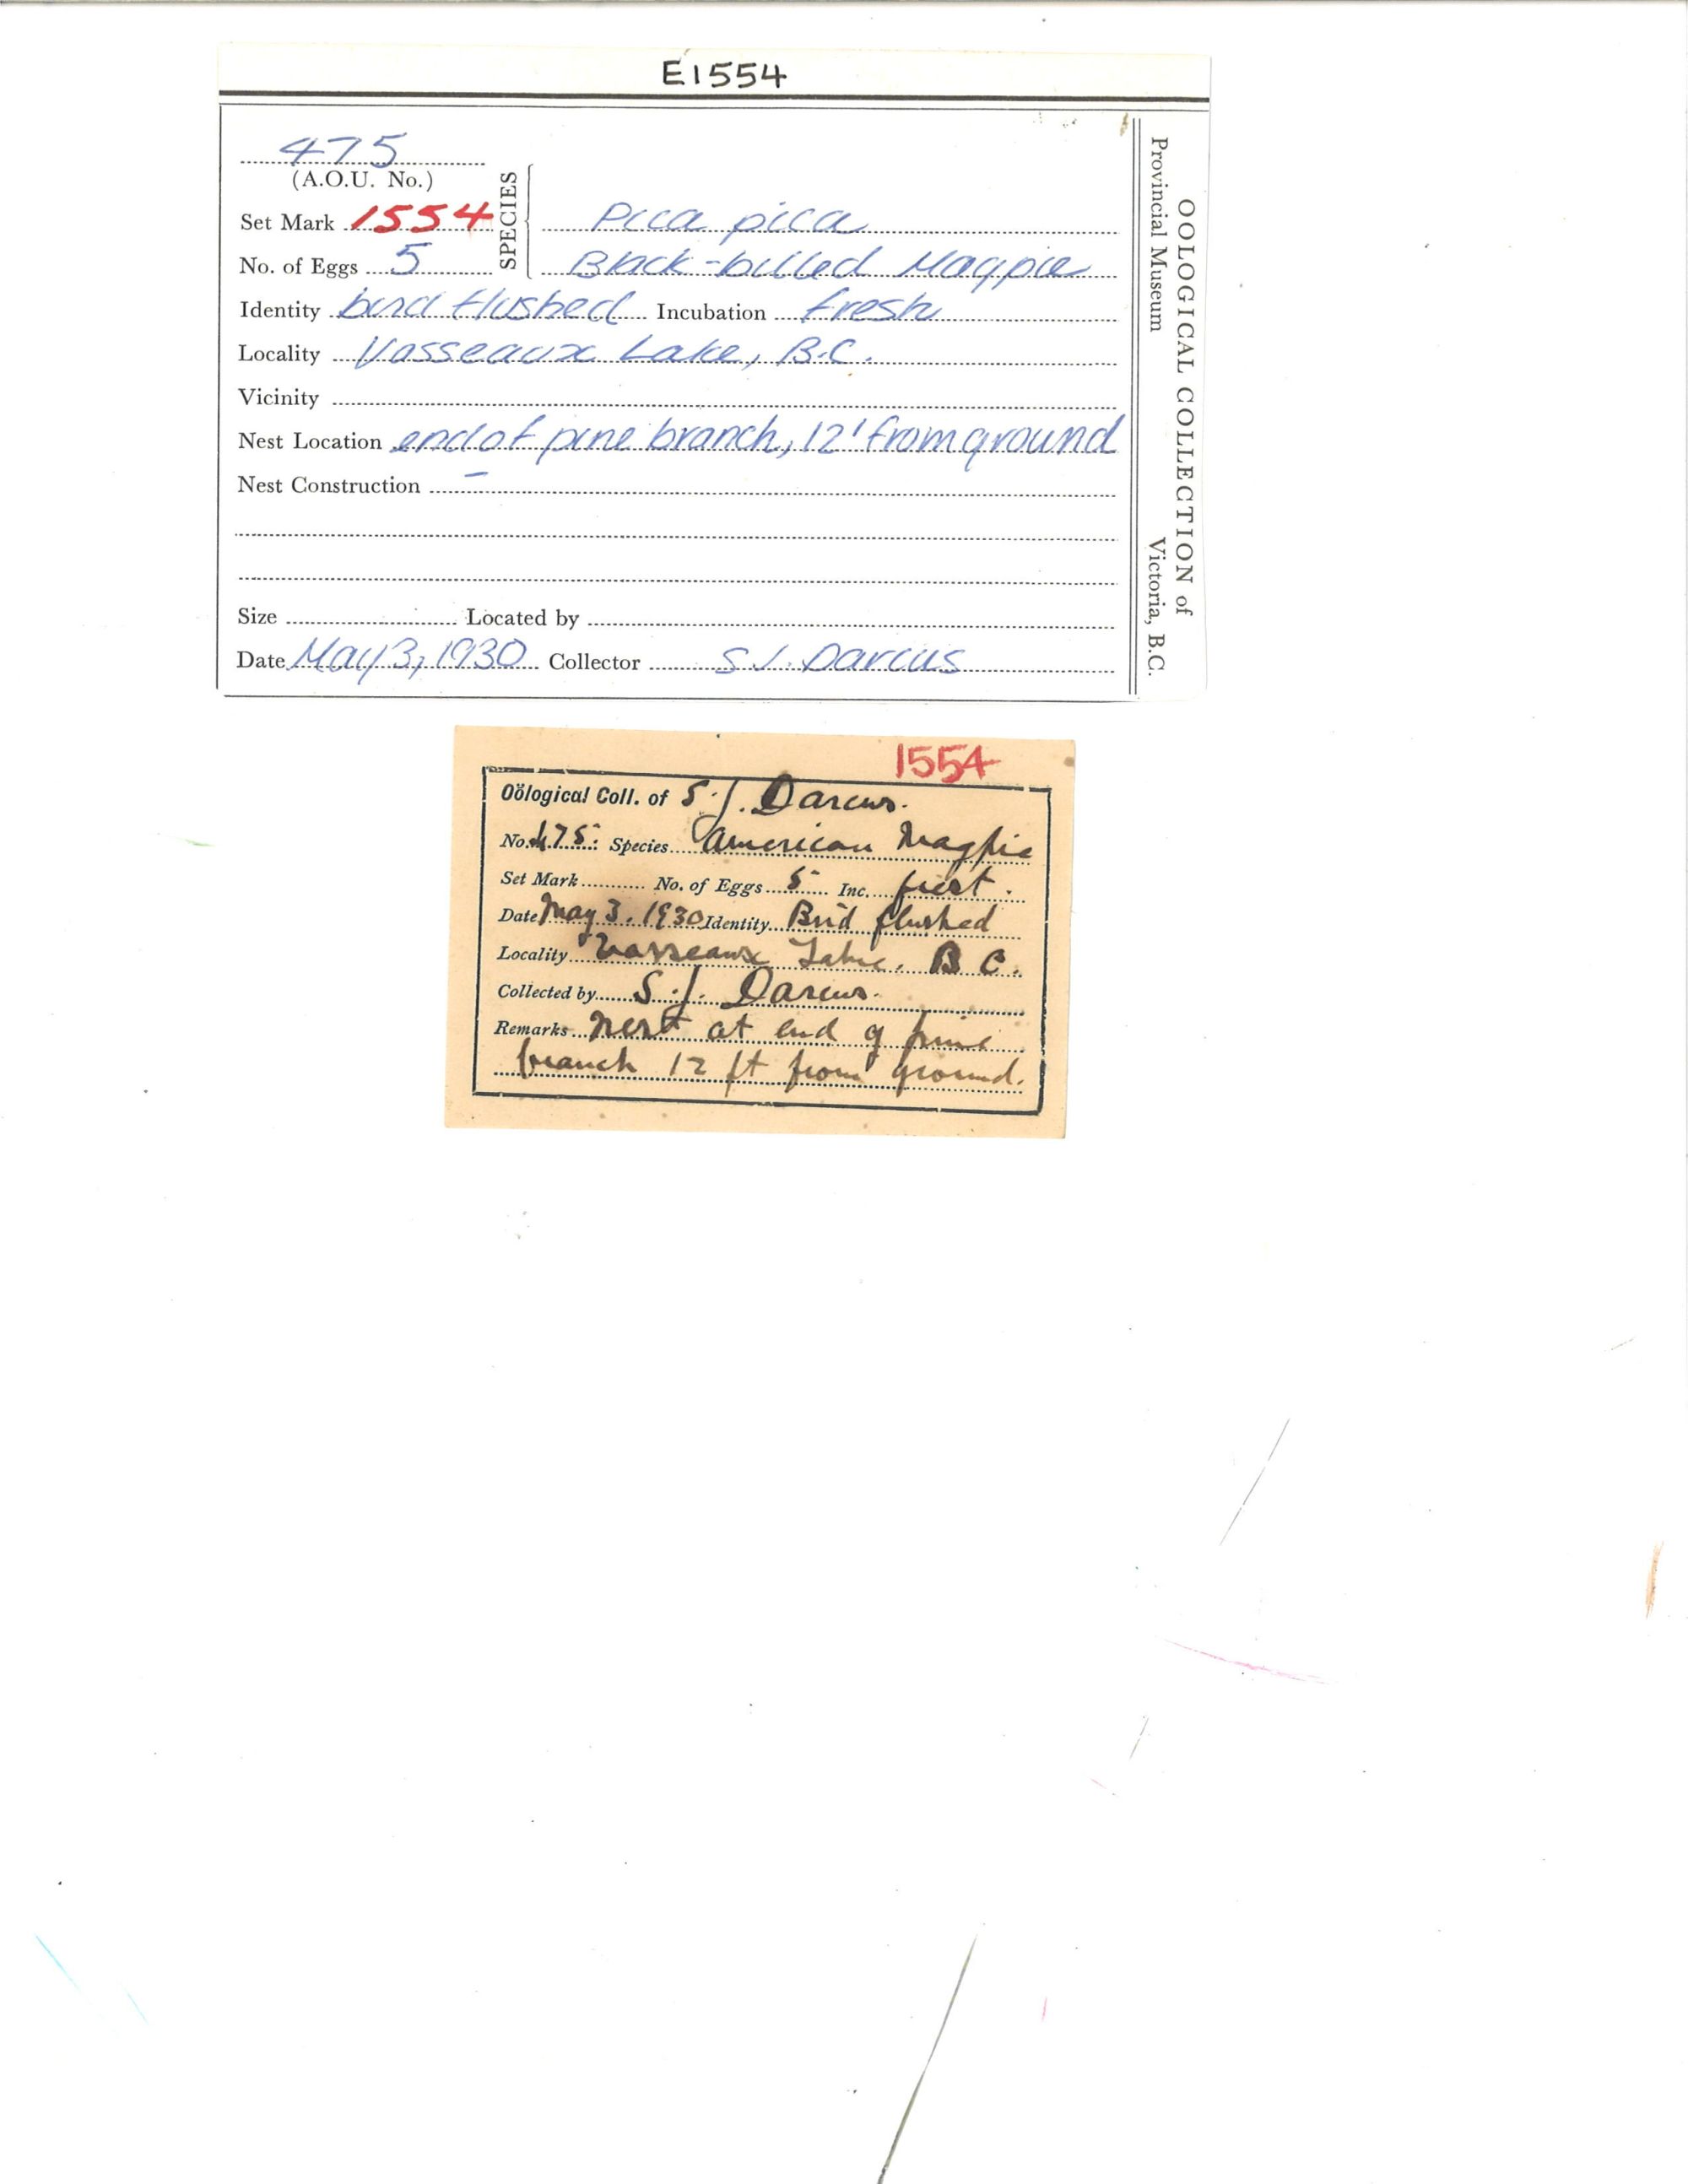 E1554
475
(A.O.U. No.)
Set Mark 1554
SPECIES
Pica pica
No. of Eggs 5
Black-billed Magpie
Identity bird flushed Incubation fresh
Locality Vasseaux Lake, B.C.
Vicinity
Nest Location end of pine branch, 12' from ground
Nest Construction –
Size Located by
Date May 3, 1930 Collector S J. Darcus
OOLOGICAL COLLECTION of
Provincial Museum Victoria, B.C.
1554
Oölogical Coll. of S. J. Darcus.
No. 475. Species American Magpie
Set Mark No. of Eggs 5 Inc.
Date May 3. 1930 Identity Bird flushed
Locality Vasseaux Lake. B C.
Collected by S. J. Darcus.
Remarks nest at end of pine
branch 12 ft from ground.